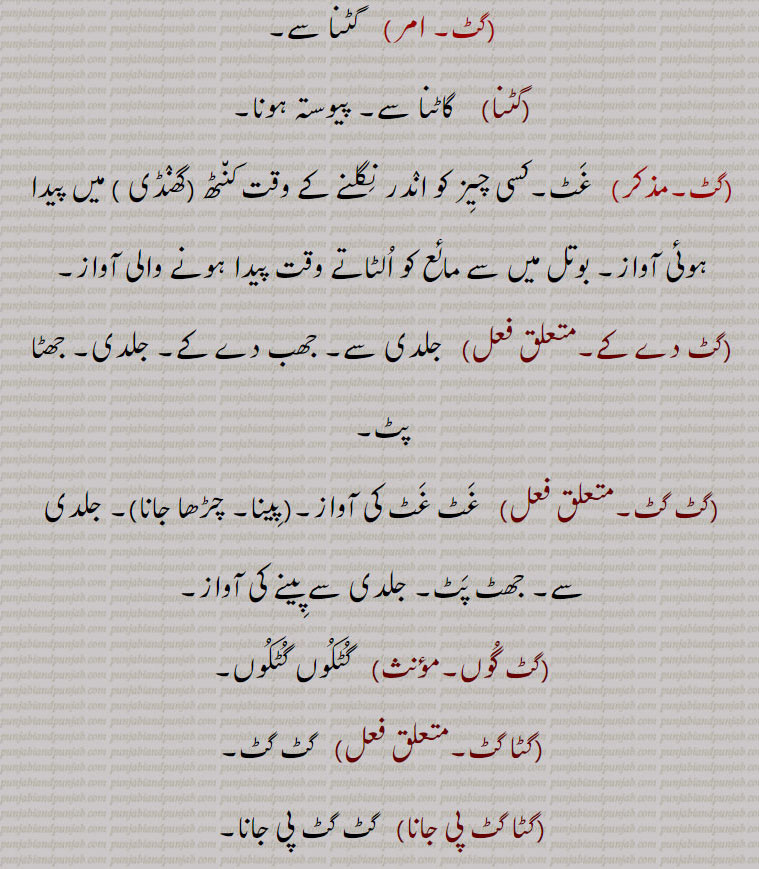 (گٹ۔ امر) گٹنا سے۔
(گٹنا) گاٹنا سے۔ پیوستہ ہونا۔
(گٹ۔ مذکر) غَٹ۔ کسی چِیز کو انْدر نِگلنے کے وقت کنّٹھ (گھنْڈی ) میں پیدا
ہوئی آواز۔ بوتل میں سے مائع کو اُلٹاتے وقت پیدا ہونے والی آواز۔
(گٹ دے کے۔ متعلق فعل) جلدی سے۔ جھب دے کے۔ جلدی۔ جھٹا
پٹ۔
(گٹ گٹ۔ متعلق فعل) غَٹ غَٹ کی آواز۔ (پِینا۔ چڑھا جانا)۔ جلدی
سے۔ جھٹ پَٹ۔ جلدی سے پِینے کی آواز۔
(گٹ گُوں۔ مؤنث) گُٹکُوں گُٹکُوں۔
(گٹا گٹ۔ متعلق فعل) گٹ گٹ۔
(گٹا گٹ پی جانا) گٹ گٹ پی جانا۔